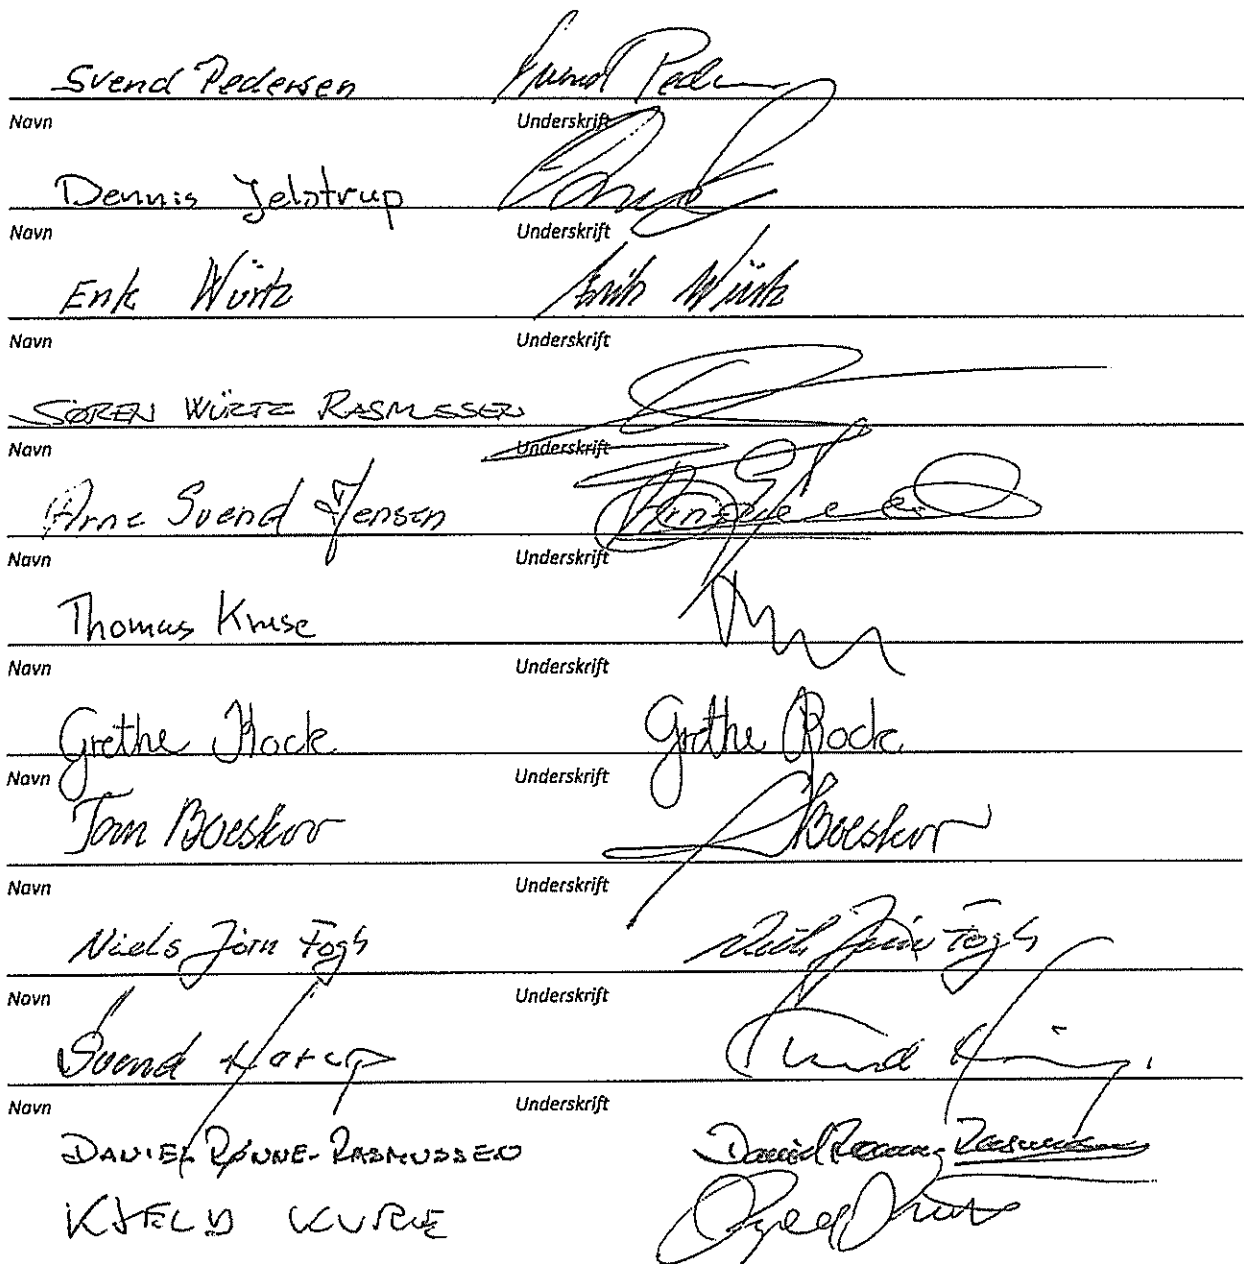 Svend Pedersen Svend Peder
Navn Underskrift
Dennis Jelstrup
Navn Underskrift
Erik Würtz Erik Würtz
Navn Underskrift
SØREN WÜRTZ RASMUSSEN
Navn Underskrift
Arne Svend Jensen
Navn Underskrift
Thomas Kruse
Navn Underskrift
Grethe Grethe
Navn Underskrift
Boeskov Boeskov
Navn Underskrift
Niels Jörn Fogh Niels Jörn Fogh
Navn Underskrift
Svend
Navn Underskrift
DANIEL RØNNE-RASMUSSEN Daniel Rønne-Rasmussen
KJELD KURE